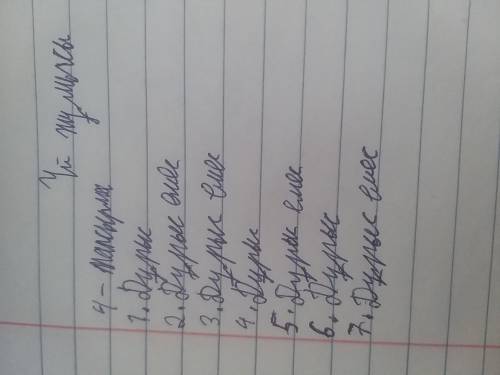 Үй жұмысы
4-тапсырма
1. Дұрыс
2. Дұрыс емес
3. Дұрыс емес
4. Дұрыс
5. Дұрыс емес
6. Дұрыс
7. Дұрыс емес